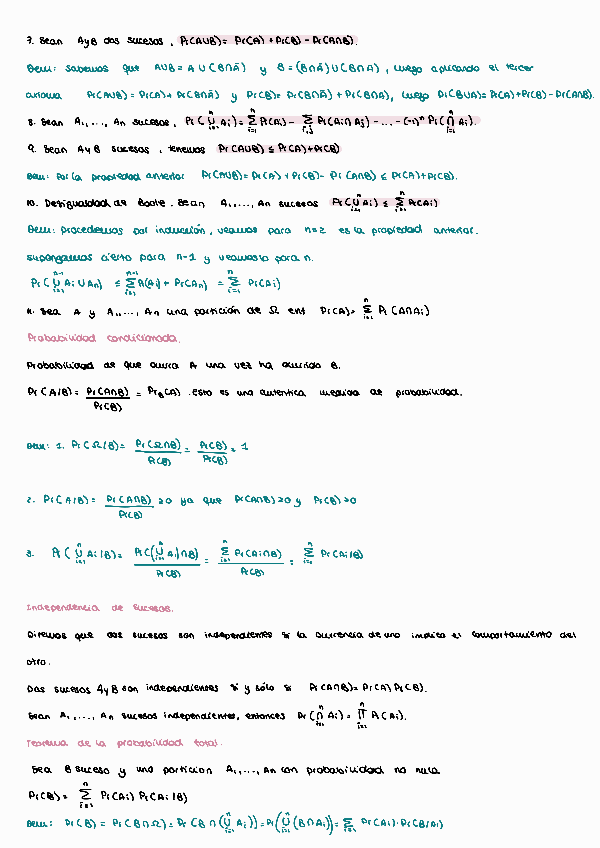 7. Sean A y B dos sucesos, Pr(A∪B)= Pr(A)+Pr(B)-Pr(A∩B).
Dem: Sabemos que A∪B = A ∪ (B∩Ā) y B = (B∩Ā)∪(B∩A), luego aplicando el tercer
axioma Pr(A∪B) = Pr(A)+ Pr(B∩Ā) y Pr(B)= Pr(B∩Ā) + Pr(B∩A), luego Pr(B∪A)= Pr(A)+Pr(B)-Pr(A∩B).
8. Sean A1,..., An sucesos, Pr(⋃_{i=1}^{n} Ai) = ∑_{i=1}^{n} Pr(Ai) - ∑_{i,j}^{n} Pr(Ai∩Aj) - ... - (-1)^n Pr(⋂_{i=1}^{n} Ai).
9. Sean A y B sucesos, tenemos Pr(A∪B) ≤ Pr(A)+Pr(B)
Dem: Por la propiedad anterior Pr(A∪B)= Pr(A)+Pr(B)- Pr(A∩B) ≤ Pr(A)+Pr(B).
10. Desigualdad de Boole. Sean A1,..., An sucesos Pr(⋃_{i=1}^{n} Ai) ≤ ∑_{i=1}^{n} Pr(Ai)
Dem: Procedemos por inducción, veamos para n=2 es la propiedad anterior.
Supongamos cierto para n-1 y veamoslo para n.
Pr(⋃_{i=1}^{n-1} Ai ∪ An) ≤ ∑_{i=1}^{n-1} Pr(Ai) + Pr(An) = ∑_{i=1}^{n} Pr(Ai)
11. Sea A y A1,..., An una partición de Ω ent Pr(A)= ∑_{i=1}^{n} Pr(A∩Ai)
Probabilidad condicionada.
Probabilidad de que ocurra A una vez ha ocurrido B.
Pr(A/B) = Pr(A∩B)/Pr(B) = Pr_B(A). Esto es una autentica medida de probabilidad.
Dem: 1. Pr(Ω/B)= Pr(Ω∩B)/Pr(B) = Pr(B)/Pr(B) = 1
2. Pr(A/B) = Pr(A∩B)/Pr(B) ≥0 ya que Pr(A∩B)≥0 y Pr(B)>0
3. Pr(⋃_{i=1}^{n} Ai/B)= Pr((⋃_{i=1}^{n} Ai)∩B)/Pr(B) = ∑_{i=1}^{n} Pr(Ai∩B)/Pr(B) = ∑_{i=1}^{n} Pr(Ai/B)
Independencia de sucesos.
Diremos que dos sucesos son independientes si la ocurrencia de uno implica el comportamiento del
otro.
Dos sucesos A y B son independientes si y sólo si Pr(A∩B)= Pr(A)Pr(B).
Sean A1,..., An sucesos independientes, entonces Pr(⋂_{i=1}^{n} Ai) = ∏_{i=1}^{n} Pr(Ai).
Teorema de la probabilidad total.
Sea B suceso y una particion A1,..., An con probabilidad no nula
Pr(B)= ∑_{i=1}^{n} Pr(Ai) Pr(Ai/B)
Dem: Pr(B) = Pr(B∩Ω) = Pr(B∩(⋃_{i=1}^{n} Ai)) = Pr(⋃_{i=1}^{n}(B∩Ai)) = ∑_{i=1}^{n} Pr(Ai)·Pr(B/Ai)